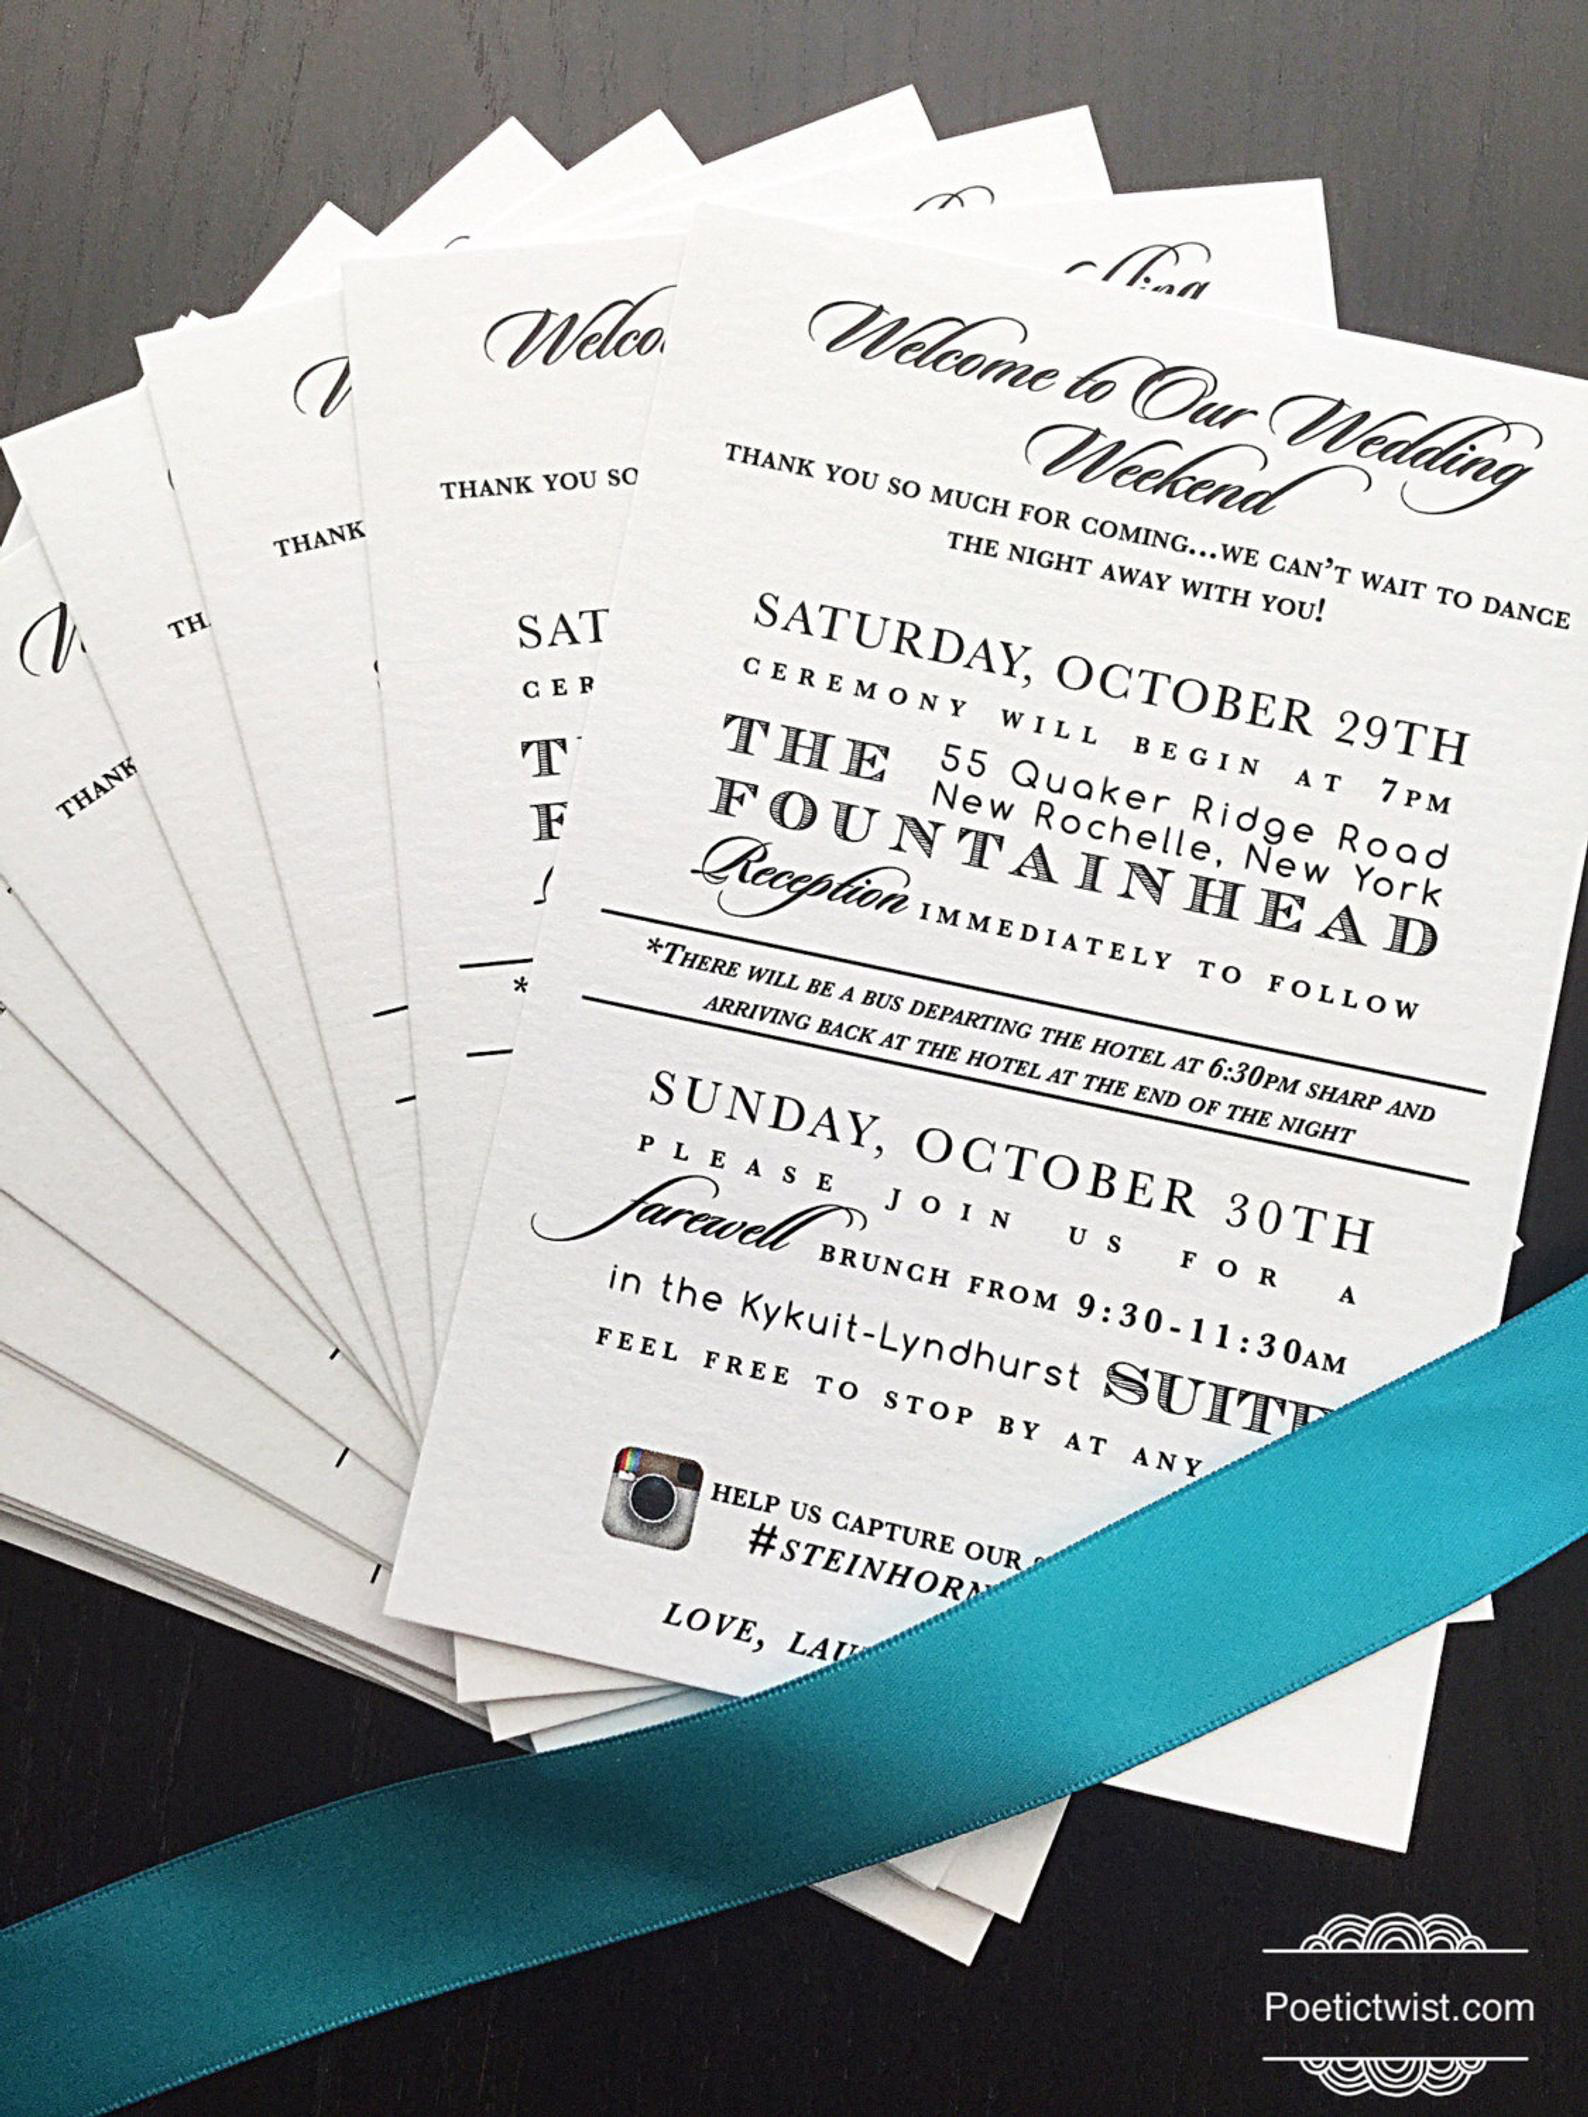 Welcome to Our Wedding
Weekend
THANK YOU SO MUCH FOR COMING...WE CAN'T WAIT TO DANCE
THE NIGHT AWAY WITH YOU!
SATURDAY, OCTOBER 29TH
CEREMONY WILL BEGIN AT 7PM
THE
55 Quaker Ridge Road
New Rochelle, New York
FOUNTAINHEAD
Reception IMMEDIATELY TO FOLLOW
*THERE WILL BE A BUS DEPARTING THE HOTEL AT 6:30PM SHARP AND
ARRIVING BACK AT THE HOTEL AT THE END OF THE NIGHT
SUNDAY, OCTOBER 30TH
PLEASE JOIN US FOR A
farewell BRUNCH FROM 9:30-11:30AM
in the Kykuit-Lyndhurst SUITE
FEEL FREE TO STOP BY AT ANY
HELP US CAPTURE OUR
#STEINHORN
LOVE, LAU
THANK YOU SO
SAT
CER
THANK
TH
THANK
Poetictwist.com